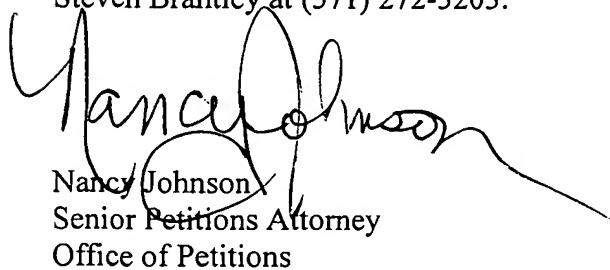 Steven Brantley at (571) 272-3203.
Nancy Johnson
Nancy Johnson
Senior Petitions Attorney
Office of Petitions